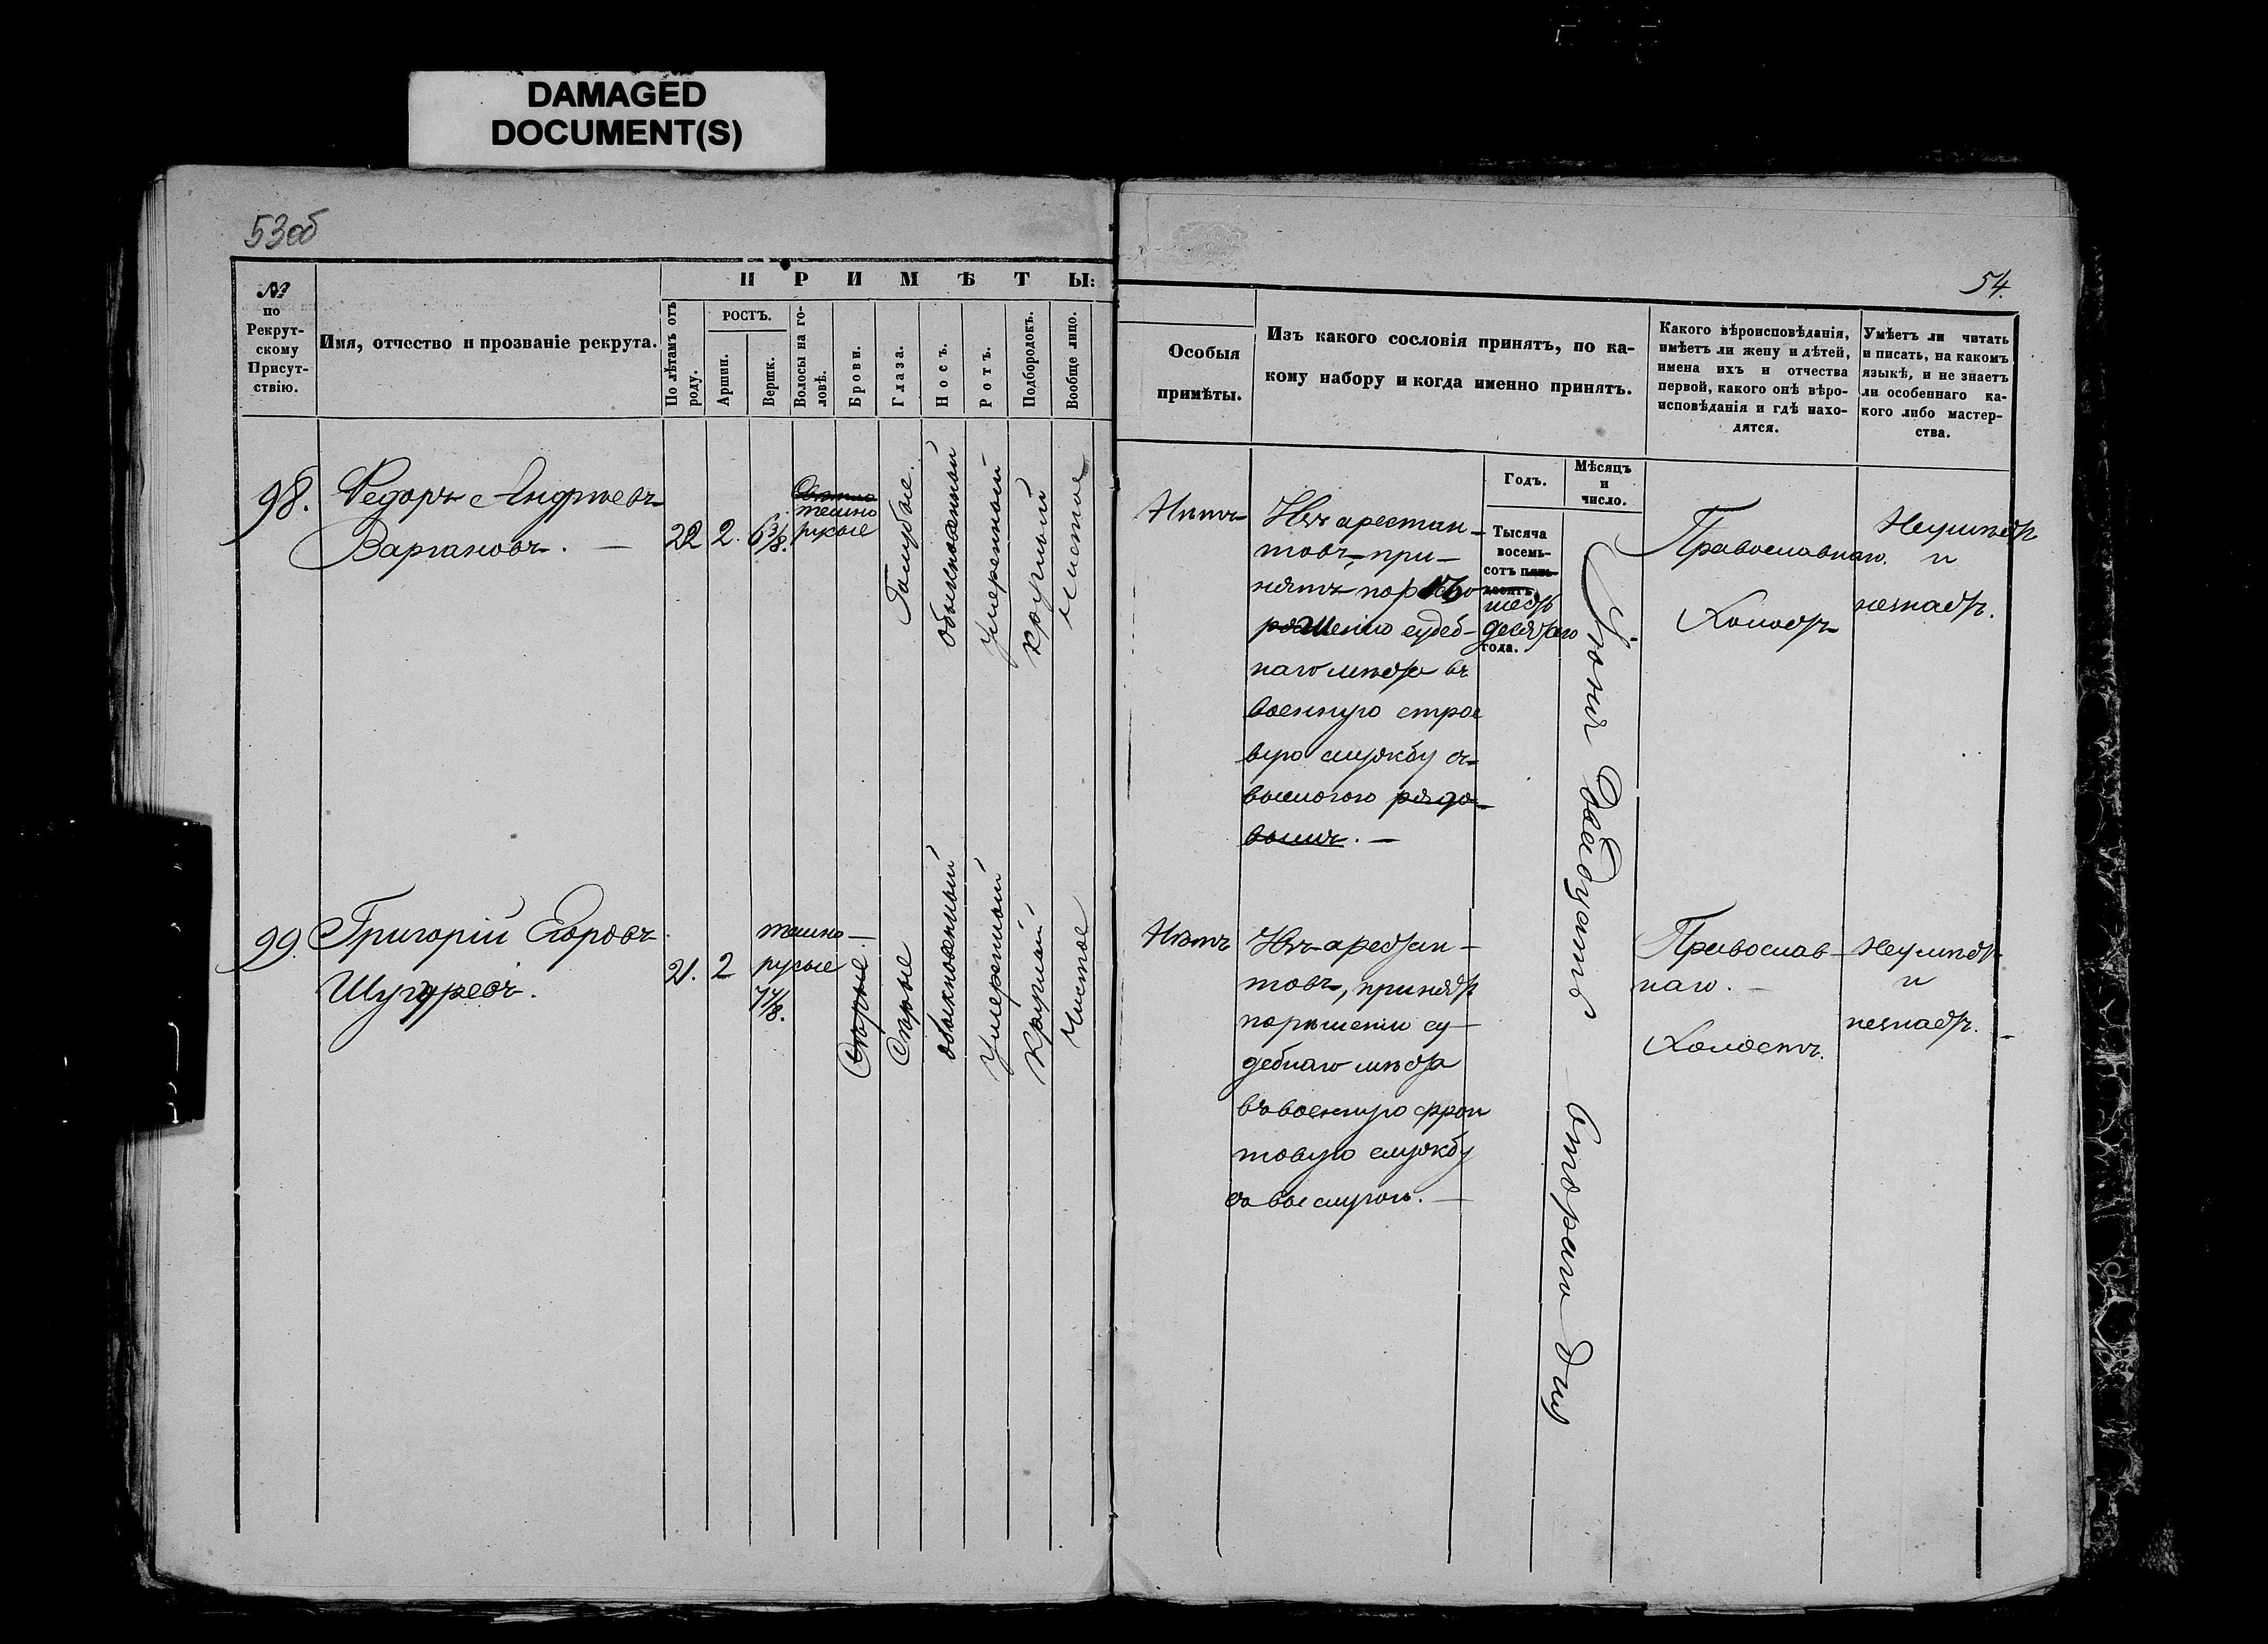 DAMAGED
DOCUMENT(S)
53об
54.
№
по
Рекрут-
скому
Присут-
ствію.
Имя, отчество и прозваніе рекрута.
П Р И М Ѣ Т Ы:
По лѣтамъ отъ
роду.
РОСТЪ.
Аршин.
Вершк.
Волосы на го-
ловѣ.
Брови.
Глаза.
Носъ.
Ротъ.
Подбородокъ.
Вообще лицо.
Особыя
примѣты.
Изъ какого сословія принятъ, по ка-
кому набору и когда именно принятъ.
Какого вѣроисповѣданія,
имѣетъ ли жену и дѣтей,
имена ихъ и отчества
первой, какого онѣ вѣро-
исповѣданія и гдѣ нахо-
дятся.
Умѣетъ ли читать
и писать, на какомъ
языкѣ, и не знаетъ
ли особеннаго ка-
кого либо мастер-
ства.
Годъ.
Мѣсяцъ
и
число.
98.
Федоръ Андреевъ
Варгановъ. —
22
2.
6 3/8.
темно
русые
Голубые.
обыкновенный
умеренный
круглый
чистое
Нѣтъ
Изъ арестан-
товъ, при-
нятъ по рѣ
шенію судеб-
наго мѣста въ
военную строе
вую службу съ
выслугою рядо-
вымъ. —
Тысяча
восемь-
сотъ пять-
десятъ
шесть
десятаго
года.
Іюня Двадцать второго дня
Православнаго.
Холостъ
Неумѣетъ
и
незнаетъ.
99.
Григорій Егоровъ
21.
2
темно-
русые
7 4/8.
Сѣрые
Сѣрые
обыкновенный
умеренный
круглый
Чистое
Нѣтъ
Изъ арестан-
товъ, принятъ
по рѣшенію су-
дебнаго мѣста
въ военную фрон
товую службу
съ выслугою. —
Православ-
наго. —
Холостъ.
Неумѣетъ
и
незнаетъ. —